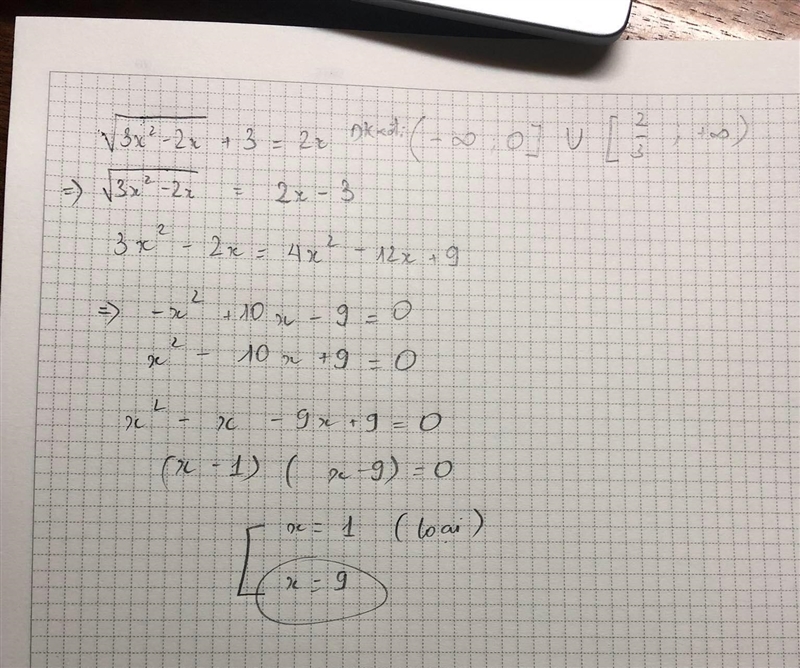 √(3x² - 2x) + 3 = 2x Đkxđ: (-∞ ; 0] ∪ [2/3 ; +∞)
⇒ √(3x² - 2x) = 2x - 3
3x² - 2x = 4x² - 12x + 9
⇒ -x² + 10x - 9 = 0
x² - 10x + 9 = 0
x² - x - 9x + 9 = 0
(x - 1) (x - 9) = 0
[ x = 1 (loại)
x = 9